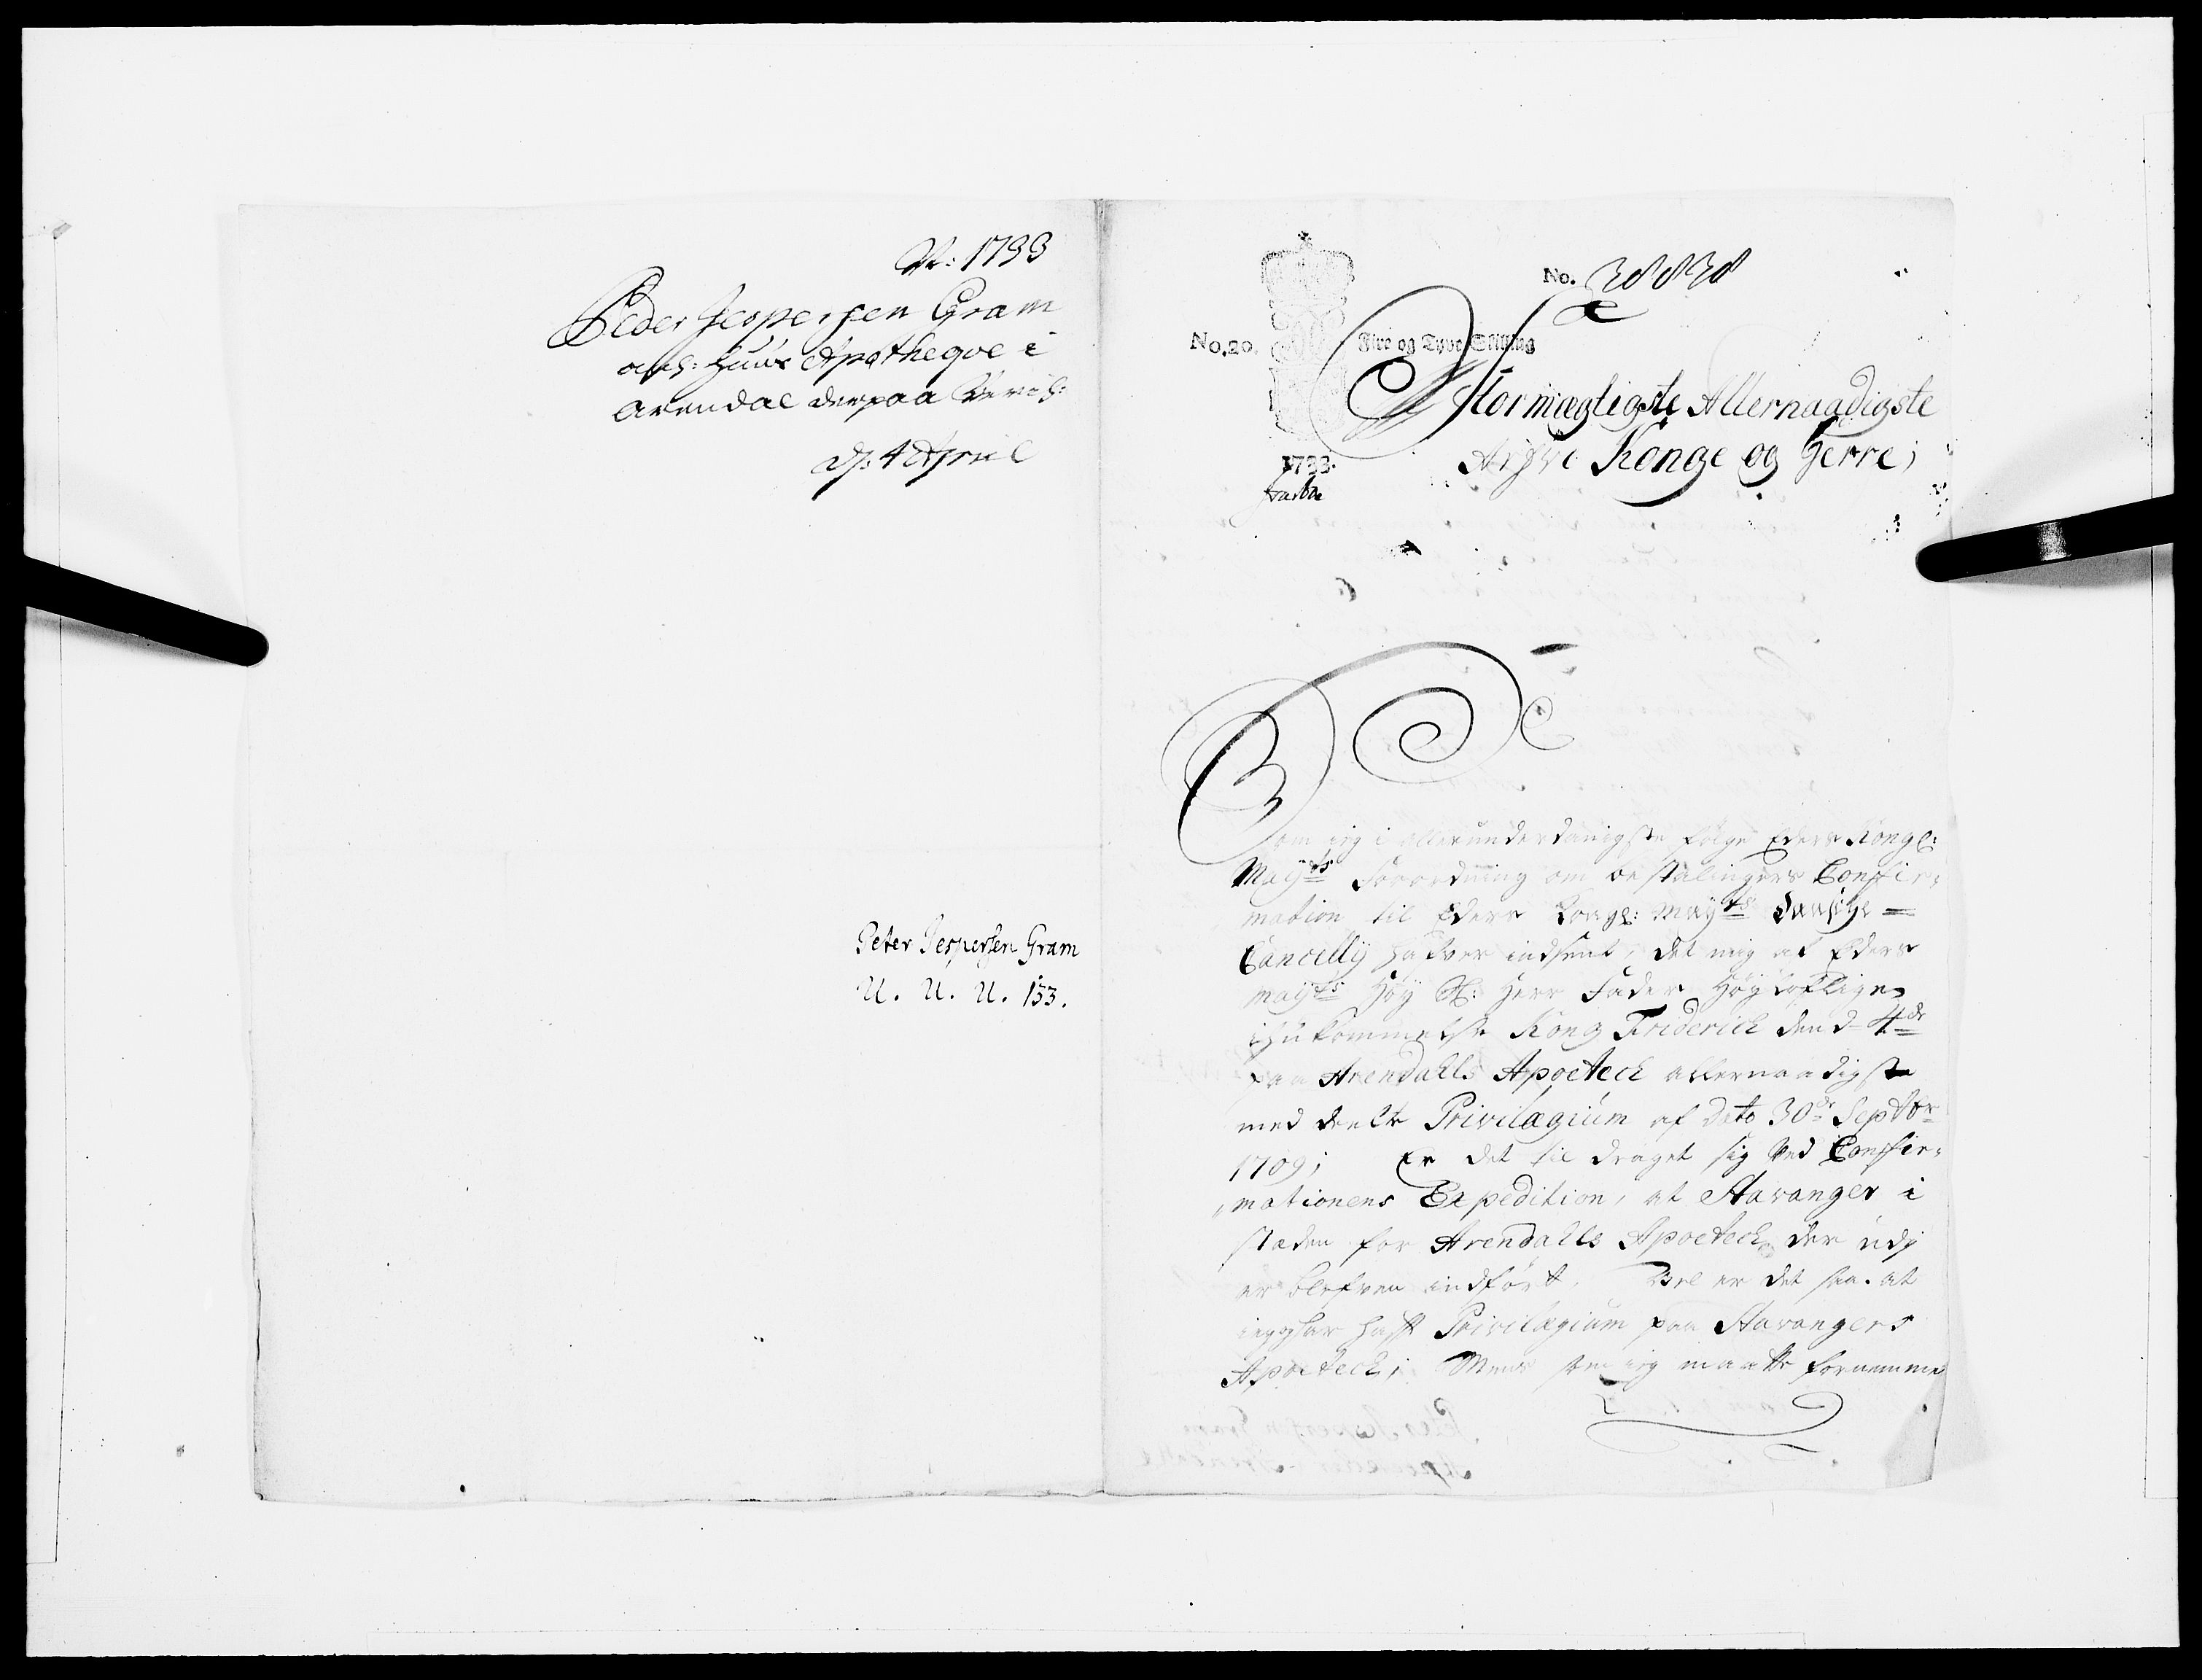 No: 1733
Peder Jespersen Gram
anl: hans Apotheqve i
Arendal derpaa Bevil:
d: 4 April
Peter Jespersen Gram
U. U. U. 133.
No. 38838
No. 20.
Fire og Tyve Skilling
1733.
Stormægtigste Allernaadigste
Arfve Konge og Herre;
Som jeg i allerunderdanigste følge Eders Kongl:
Mayts Forordning om bestalingers Confir-
mation til Eders Kongl: Mayts Danske
Cancelly hafver indsent, det mig af Eders
Mayts Høy Sl: Herr Fader Høyloflige
ihukommelse Kong Friderich dend 4de
paa Arendalls Apoeteck allernaadigste
meddeelte Privilægium af dato 30de Septbr
1709; Er det tildraget sig ved Confir-
mationens Expedition, at Stavanger i
stæden for Arendalls Apoeteck der udj
er blefven indført. Vel er det saa at
jeg har haft Privilægium paa Stavangers
Apoeteck; Mens som jeg maatte fornemme